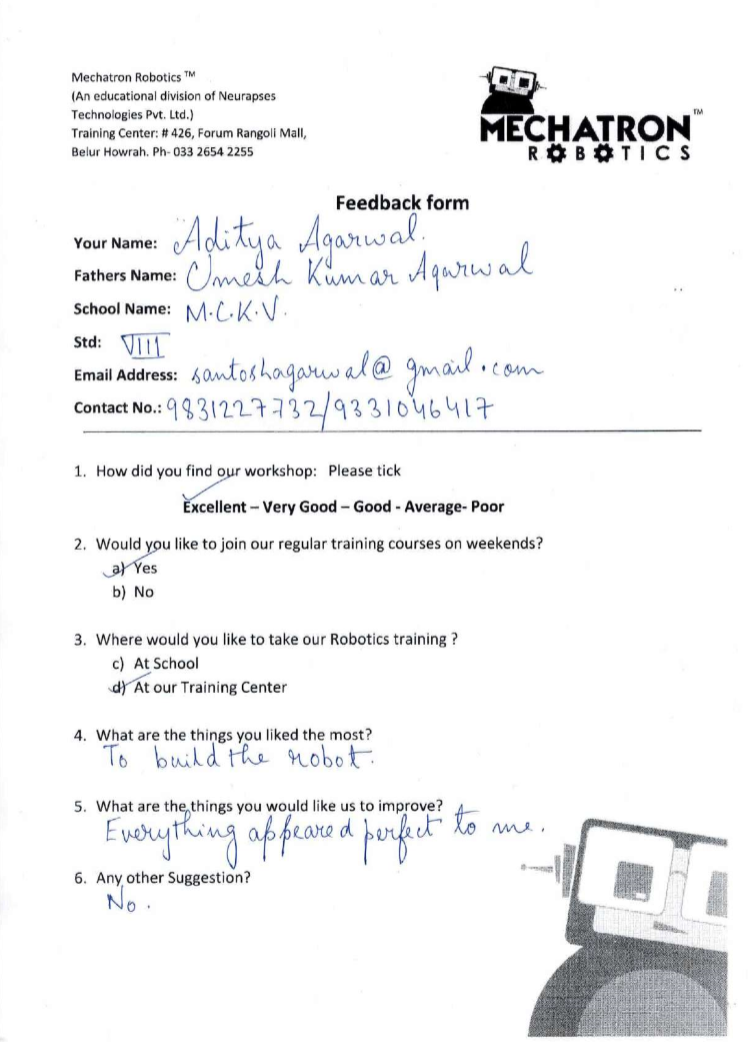 Mechatron Robotics ™
(An educational division of Neurapses
Technologies Pvt. Ltd.)
Training Center: # 426, Forum Rangoli Mall,
Belur Howrah. Ph- 033 2654 2255
MECHATRON™
ROBOTICS
Feedback form
Your Name: Aditya Agarwal.
Fathers Name: Umesh Kumar Agarwal
School Name: M.C.K.V.
Std: VIII
Email Address: santoshagarwal@gmail.com
Contact No.: 9831227732/9331046417
1. How did you find our workshop: Please tick
Excellent – Very Good – Good - Average- Poor
2. Would you like to join our regular training courses on weekends?
a) Yes
b) No
3. Where would you like to take our Robotics training ?
c) At School
d) At our Training Center
4. What are the things you liked the most?
To build the robot.
5. What are the things you would like us to improve?
Everything appeared perfect to me.
6. Any other Suggestion?
No.